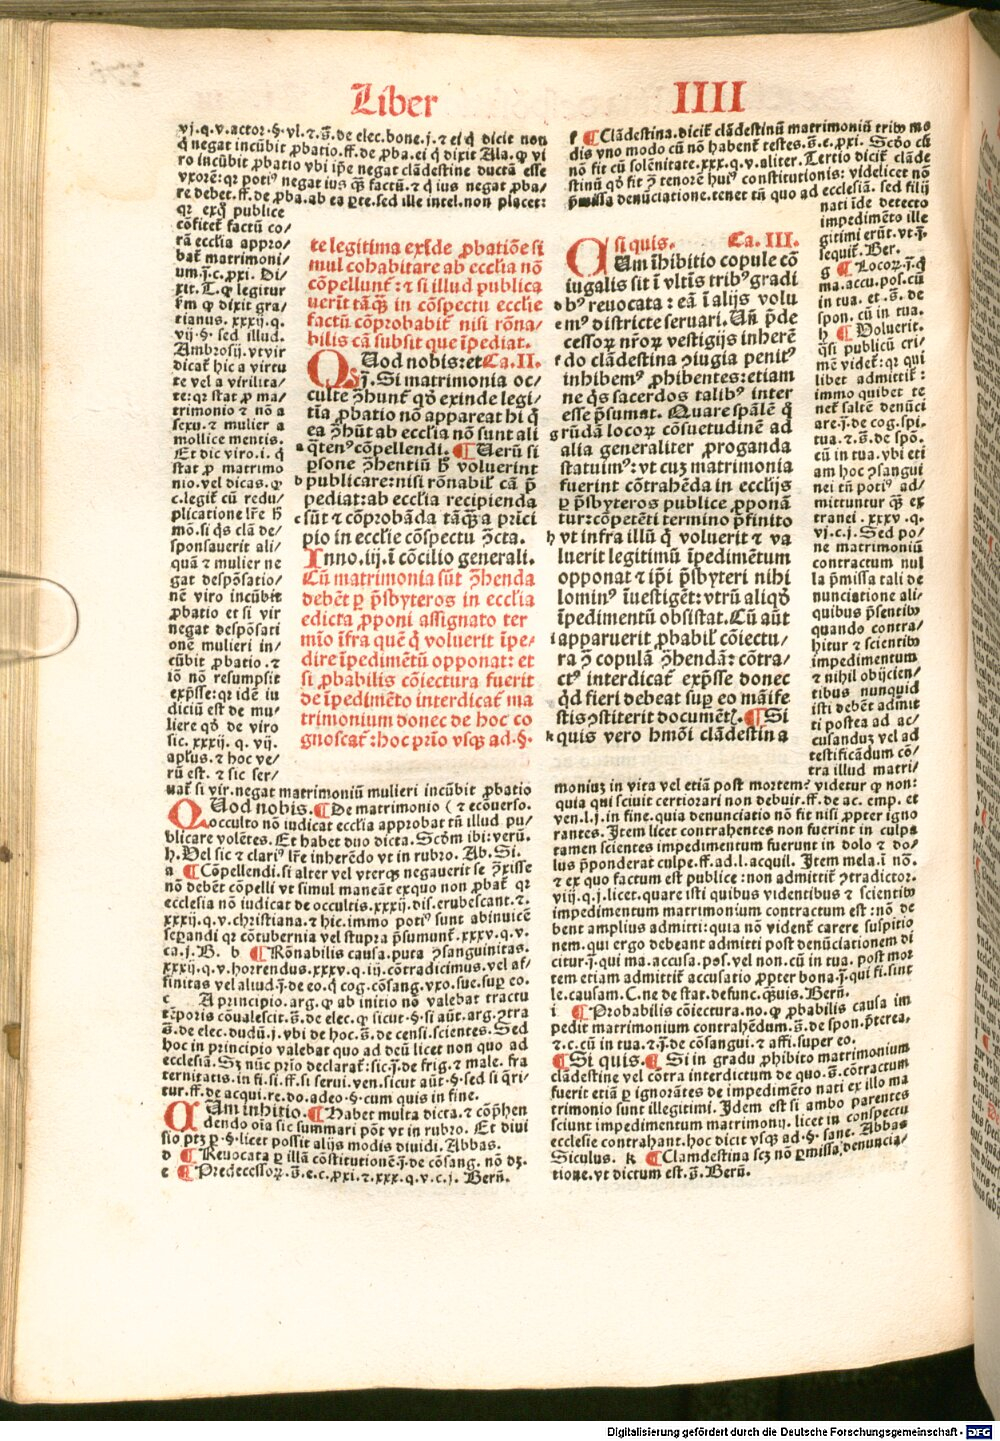 Liber IIII
vj.q.v.actor.§.vl.⁊.s̄.de elec.bone.j.⁊ ei q̄ dicit non
q̄ negat incūbit ꝓbatio.ff.de ꝓba.ei q̄ dixit Ala.ꝙ vi
ro incūbit ꝓbatio vbi ip̄e negat clādestine ductā esse
vxorē:qꝛ potiꝰ negat ius ꝙ̄ factū.⁊ q̄ ius negat ꝓba/
re debet.ff.de ꝓba.ab ea ꝑte.sed ille intel.non placet:
qꝛ exq̊ publice
cōfitet̄ factū co/
rā ecclīa appro/
bat̄ matrimoni/
um.j̄.c.ꝓxi. Di/
xit.T.ꝙ legitur
fm ꝙ dixit gra/
tianus.xxxij.q.
vij.§.sed illud.
Ambrosij.vt vir
dicat̄ hic a virtu
te vel a virilita/
te:qꝛ stat ꝓ ma/
trimonio ⁊ nō a
sexu.⁊ mulier a
mollicie mentis.
Et dic viro.i.q̄
stat ꝓ matrimo
nio.vel dicas.ꝙ
c.legit̄ cū redu/
plicatione lr̄e h̄
mō.si q̄s clā de/
sponsauerit ali/
quā ⁊ mulier ne
gat despōsatio/
nē viro incūbit
ꝓbatio et si vir
negat despōsati
onē mulieri in/
cūbit ꝓbatio.⁊
iō nō resumpsit
exp̄sse:qꝛ idē iu
diciū est de mu/
liere qd̄ de viro
sic.xxxij.q.vij.
apłus.⁊ hoc ve/
rū est.⁊ sic ser/
uat̄ si vir.negat matrimoniū mulieri incūbit ꝓbatio
Quod nobis.¶De matrimonio (⁊ ecōuerso.
occulto nō iudicat ecclīa approbat tn̄ illud pu/
blicare volētes.Et habet duo dicta.Scd̄m ibi:verū.
H.Vel sic ⁊ clariꝰ lr̄e inherēdo vt in rubro.Ab.Si.
a ¶Cōpellendi.si alter vel vterꝙ negauerit se ꝯ̄xisse
nō debēt cōpelli vt simul maneāt exquo non ꝓbat̄ qꝛ
ecclesia nō iudicat de occultis.xxxij.dis.erubescant.⁊.
xxxij.q.v.christiana.⁊ hic.immo potiꝰ sunt abinuicē
seꝑandi qꝛ cōtubernia vel stupra p̄sumunt̄.xxxv.q.v.
ca.j.B. b ¶Rōnabilis causa.puta ꝯsanguinitas.
xxxij.q.v.horrendus.xxxv.q.iij.cōtradicimus.vel af/
finitas vel aliud.j̄.de eo.q̄ cog.cōsang.vxo.sue.suꝑ eo.
c A principio.arg.ꝙ ab initio nō valebat tractu
tēporis cōualescit.s̄.de elec.ꝙ sicut.§.si aūt.arg.ꝯtra
s̄.de elec.dudū.j.vbi de hoc.s̄.de censi.scientes.Sed
hoc in principio valebat quo ad deū licet non quo ad
ecclesiā.Sꝫ nūc prio declarat̄:sic.j̄.de frig.⁊ male.fra
ternitatis.in fi.si.ff.si serui.ven.sicut aūt.§.sed si q̄ri/
tur.ff.de acqui.re.do.adeo.§.cum quis in fine.
Cum inhibitio.¶Habet multa dicta.⁊ cōp̄hen
dendo oīa sic summari pōt vt in rubro. Et diui
sio ptꝫ ꝑ.§.licet possit alijs modis diuidi. Abbas.
d ¶Reuocata ꝑ illā cōstitutionē.j̄.de cōsang. nō dꝫ.
e ¶Predecessoꝝ.s̄.e.c.ꝓxi.⁊.xxx.q.v.c.j. Bern̄.
te legitima exīde ꝓbatiōe si
mul cohabitare ab ecclīa nō
cōpellunt̄:⁊ si illud publica
uerīt tāꝙ̄ in cōspectu ecclīe
factū cōprobabit̄ nisi rōna/
bilis cā subsit que īpediat.
Quod nobis:et Ca.II.
s̄.j.Si matrimonia oc/
culte ꝯ̄hunt̄ qd̄ exinde legi/
tīa ꝓbatio nō appareat hi q̄
ea ꝯ̄hūt ab ecclīa nō sunt ali
a q̄tenꝰ cōpellendi.¶Verū si
ꝑsone ꝯ̄hentiū h̄ voluerint
b publicare:nisi rōnabil̄ cā p̄
pediat:ab ecclīa recipienda
c sūt ⁊ cōprobāda tāꝙ̄ a prīci
pio in ecclīe cōspectu ꝯ̄cta.
Inno.iij.ī cōcilio generali.
Cū matrimonia sūt ꝯ̄henda
debēt ꝑ p̄sbyteros in ecclīa
edicta ꝓponi assignato ter
mīo īfra quē q̄ voluerit īpe/
dire īpedimētū opponat: et
si ꝓbabilis cōiectura fuerit
de īpedimēto interdicat̄ ma
trimonium donec de hoc co
gnoscat̄:hoc prīo vsꝙ ad.§.
si quis. Ca.III.
Cum īhibitio copule cō
iugalis sit ī vltīs tribꝰ gradi
d bꝰ reuocata: eā ī alijs volu
e mꝰ districte seruari. Uñ p̄de
cessoꝝ nr̄oꝝ vestigijs inherē
f do clādestina ꝯiugia penitꝰ
inhibemꝰ ꝓhibentes:etiam
ne q̄s sacerdos talibꝰ inter
esse p̄sumat. Quare sp̄alē q̄
g rūdā locoꝝ cōsuetudinē ad
alia generaliter ꝓroganda
statuimꝰ:vt cuꝫ matrimonia
fuerint cōtrahēda in ecclījs
ꝑ p̄sbyteros publice ꝓponā
tur:cōpetēti termino p̄finito
h vt infra illū q̄ voluerit ⁊ va
luerit legitimū īpedimētum
opponat ⁊ ip̄i p̄sbyteri nihi
lominꝰ īuestigēt:vtrū aliqd̄
īpedimētū obsistat.Cū aūt
i apparuerit ꝓbabil̄ cōiectu/
ra ꝯ̄ copulā ꝯ̄hendā:cōtra/
ctꝰ interdicat̄ exp̄sse donec
qd̄ fieri debeat suꝑ eo māife
stis ꝯstiterit documēt̄.¶Si
k quis vero hmōi clādestina
f ¶Clādestina.dicit̄ clādestinū matrimoniū tribꝰ mo
dis vno modo cū nō habent̄ testes.s̄.e.ꝓxi. Scd̄o cū
nō fit cū solēnitate.xxx.q.v.aliter.Tertio dicit̄ clāde
stinū qd̄ fit ꝯ̄ tenorē huiꝰ constitutionis: videlicet nō
p̄missa denūciatione.tenet tn̄ quo ad ecclesiā. sed filij
nati īde detecto
impedimēto ille
gitimi erūt.vt j̄.
sequit̄. Ber.
g ¶Locoꝝ.j̄.q̄
ma.accu.pos.cū
in tua. et.s̄. de
spon. cū in tua.
h ¶Voluerit.
q̄si publicū cri/
mē videt̄:qꝛ qui
libet admittit̄:
immo quibet te
net̄ saltē denūci
are.j̄.de cog.spi.
tua.⁊.s̄.de spō.
cū in tua.vbi eti
am hoc ꝯsangui
nei tn̄ potiꝰ ad/
mittuntur ꝙ̄ ex
tranei.xxxv.q.
vj.c.j.Sed po/
ne matrimoniū
contractum nul
la p̄missa tali de
nunciatione ali/
quibus p̄sentibꝰ
quando contra/
hitur ⁊ scientibꝰ
impedimentum
⁊ nihil obijcien/
tibus nunquid
isti debēt admit
ti postea ad ac/
cusanduꝫ vel ad
testificādum cō/
tra illud matri/
moniuꝫ in vita vel etiā post mortem? videtur ꝙ non:
quia qui sciuit certiorari non debuit.ff.de ac. emp. et
ven.l.j.in fine.quia denunciatio nō fit nisi ꝓpter igno
rantes. Item licet contrahentes non fuerint in culpa
tamen scientes impedimentum fuerunt in dolo ⁊ do/
lus p̄ponderat culpe.ff.ad.l.acquil. Item mela.ī nō.
⁊ ex quo factum est publice:non admittit̄ ꝯtradictor.
viij.q.j.licet.quare isti quibus videntibus ⁊ scientibꝰ
impedimentum matrimonium contractum est:nō de
bent amplius admitti:quia nō vident̄ carere suspitio
nem.qui ergo debeant admitti post denūciationem di
citur.j̄.qui ma.accusa.pos.vel non.cū in tua. post mor
tem etiam admittit̄ accusatio ꝓpter bona.j̄.qui fi.sint
le.causam.C.ne de stat.defunc.ꝙuis. Bern̄.
i ¶Probabilis cōiectura.no.ꝙ ꝓbabilis causa im
pedit matrimonium contrahēdum.s̄.de spon.p̄terea.
⁊.c.cū in tua.⁊.j̄.de cōsangui.⁊ affi.super eo.
¶Si quis.¶Si in gradu ꝓhibito matrimonium
clādestine vel cōtra interdictum de quo.s̄.cōtractum
fuerit etiā ꝑ ignorātes de impedimēto nati ex illo ma
trimonio sunt illegitimi. Idem est si ambo parentes
sciunt impedimentum matrimonij. licet in conspectu
ecclesie contrahant. hoc dicit vsꝙ ad.§.sane. Abbas
Siculus. k ¶Clamdestina scꝫ nō ꝑmissa denuncia/
tione.vt dictum est.s̄.Bern̄.
Digitalisierung gefördert durch die Deutsche Forschungsgemeinschaft - DFG